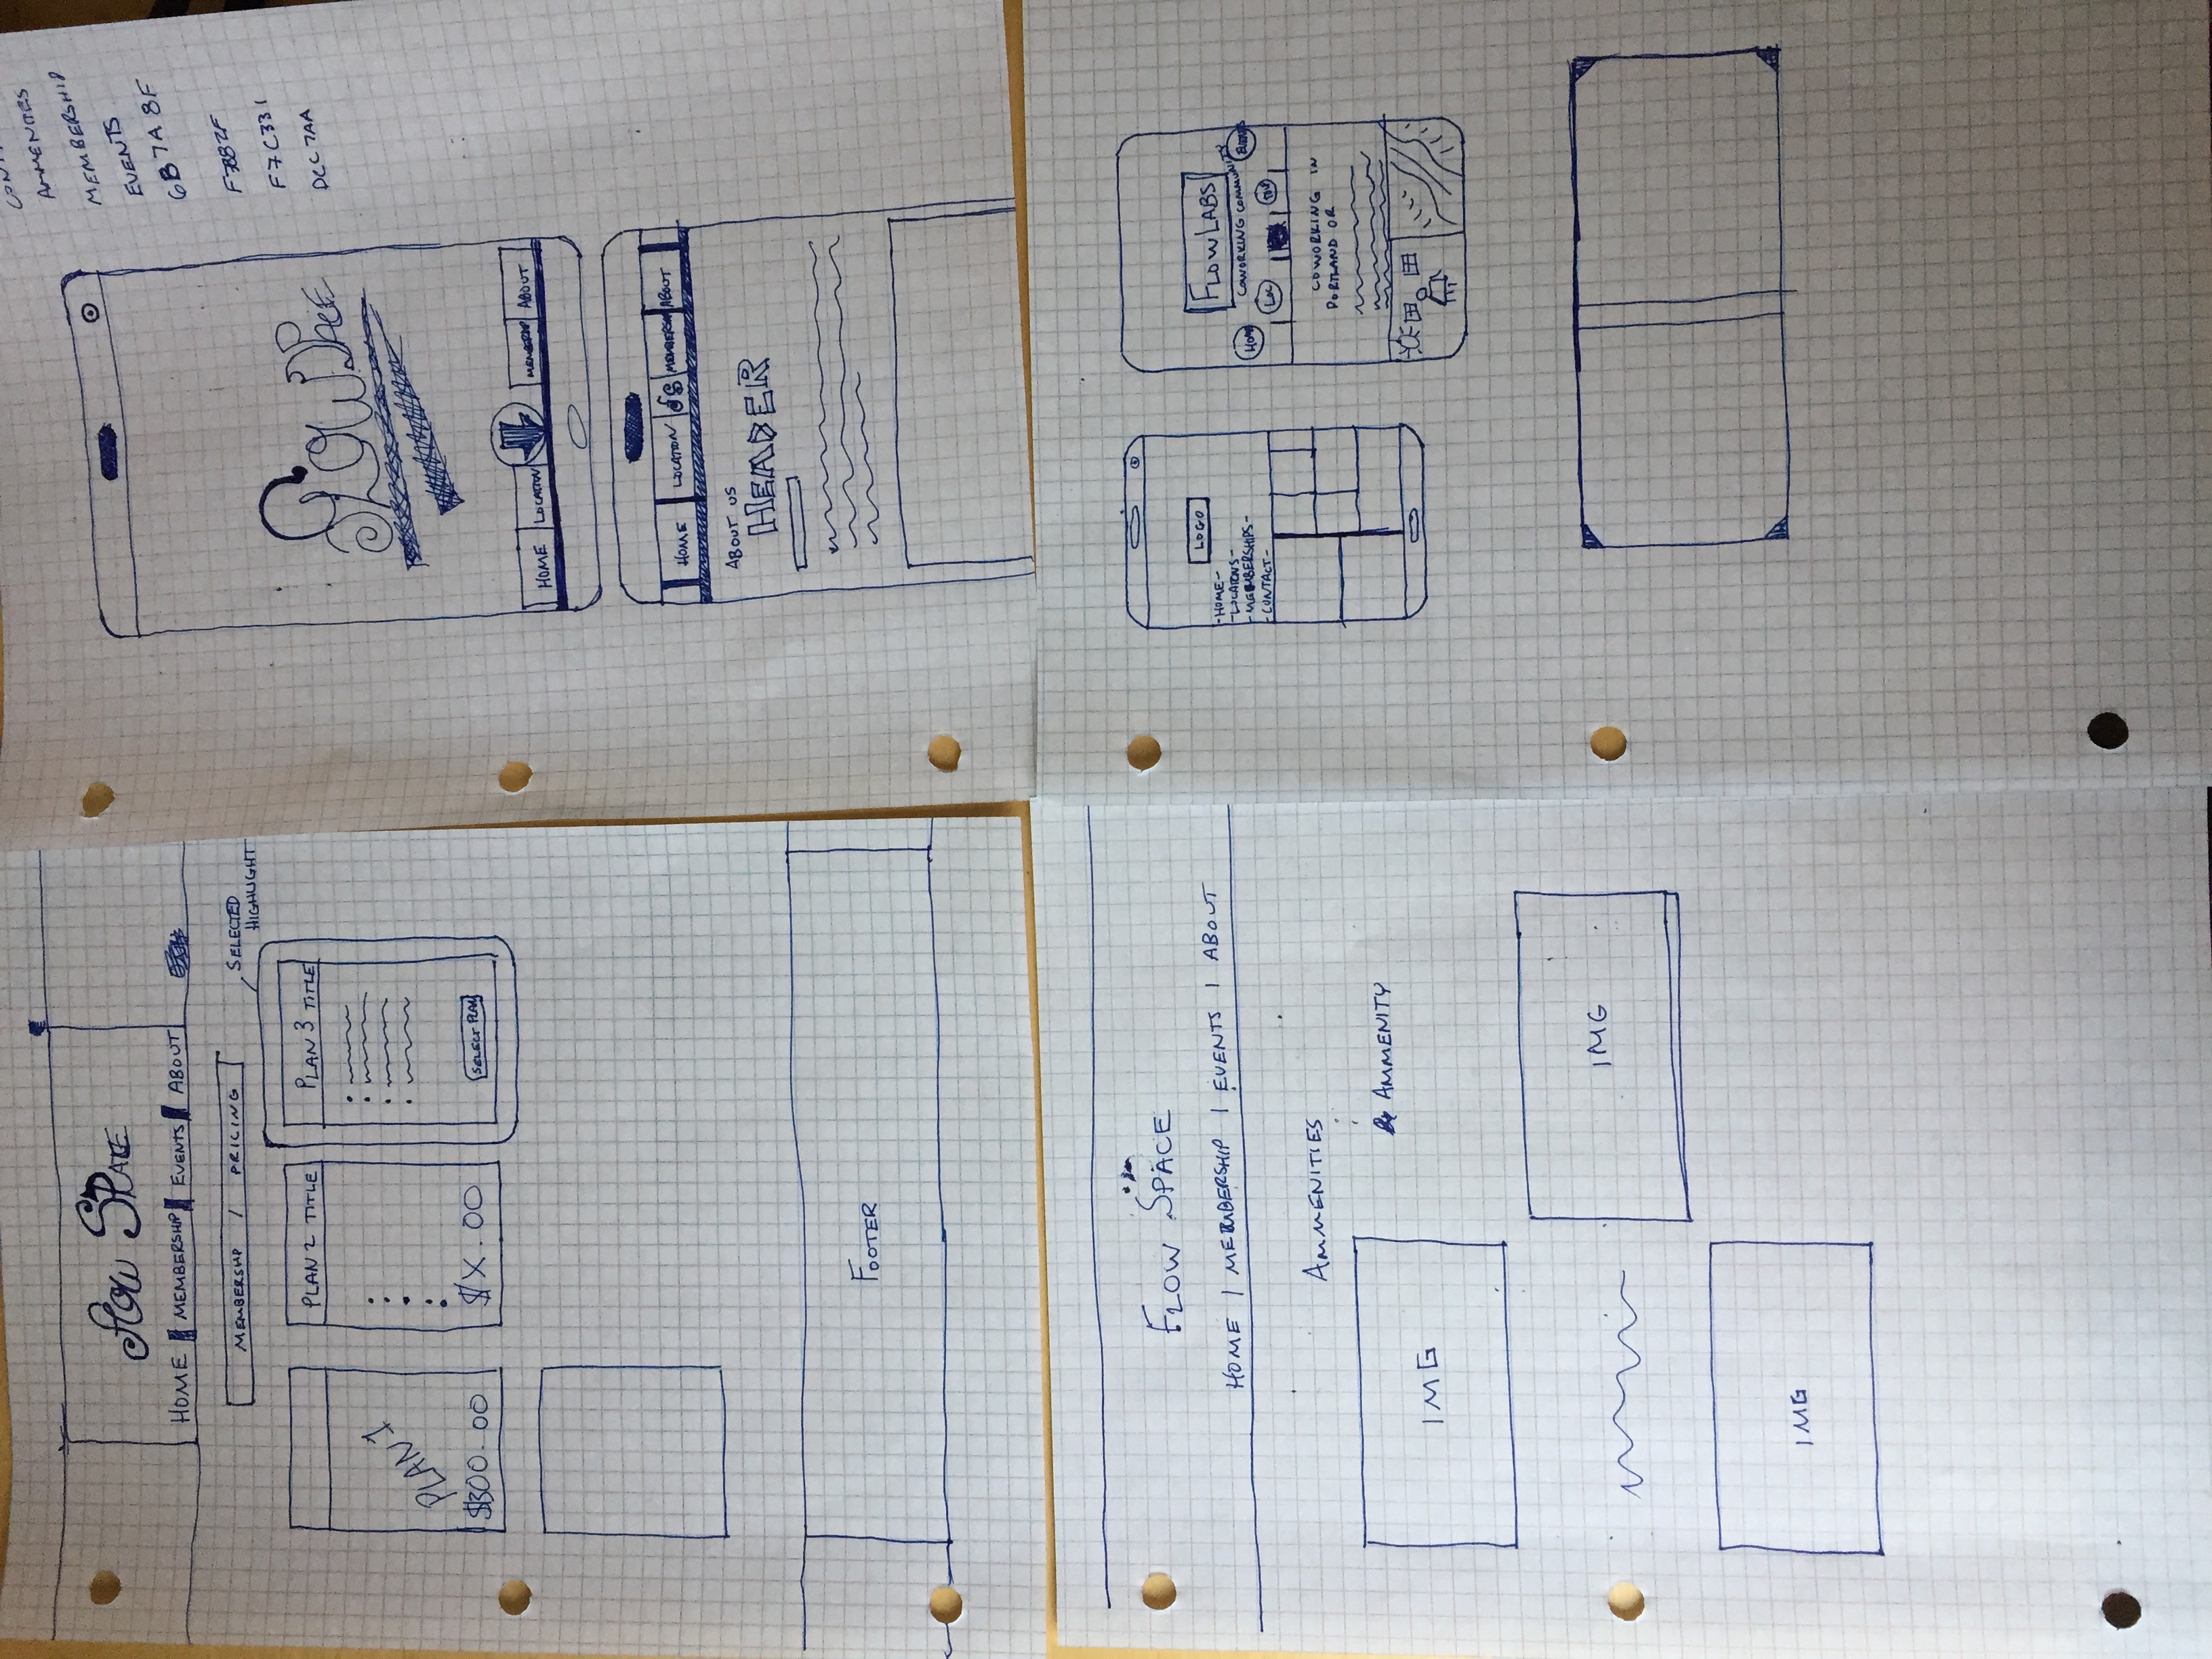 Flow SPACE
HOME | MEMBERSHIP | EVENTS | ABOUT
MEMBERSHP / PRICING
SELECTED
HIGHLIGHT
PLAN 1
$300.00
PLAN 2 TITLE
$X.00
PLAN 3 TITLE
SELECT PLAN
FOOTER
AMMENITIES
MEMBERSHIP
EVENTS
6B7A8F
F7C331
DCC7AA
FLOW SPACE
HOME
LOCATION
ABOUT
HOME
LOCATION
fS
MEMBERSHIP
ABOUT
ABOUT US
HEADER
FLOW SPACE
HOME | MEMBERSHIP | EVENTS | ABOUT
AMMENITIES
IMG
AMMENITY
IMG
IMG
LOGO
-HOME-
-LOCATIONS-
-MEMBERSHIPS-
-CONTACT-
FLOWLABS
COWORKING COMMUNITY
HOME
LOC
EVENTS
COWORKING IN
PORTLAND OR